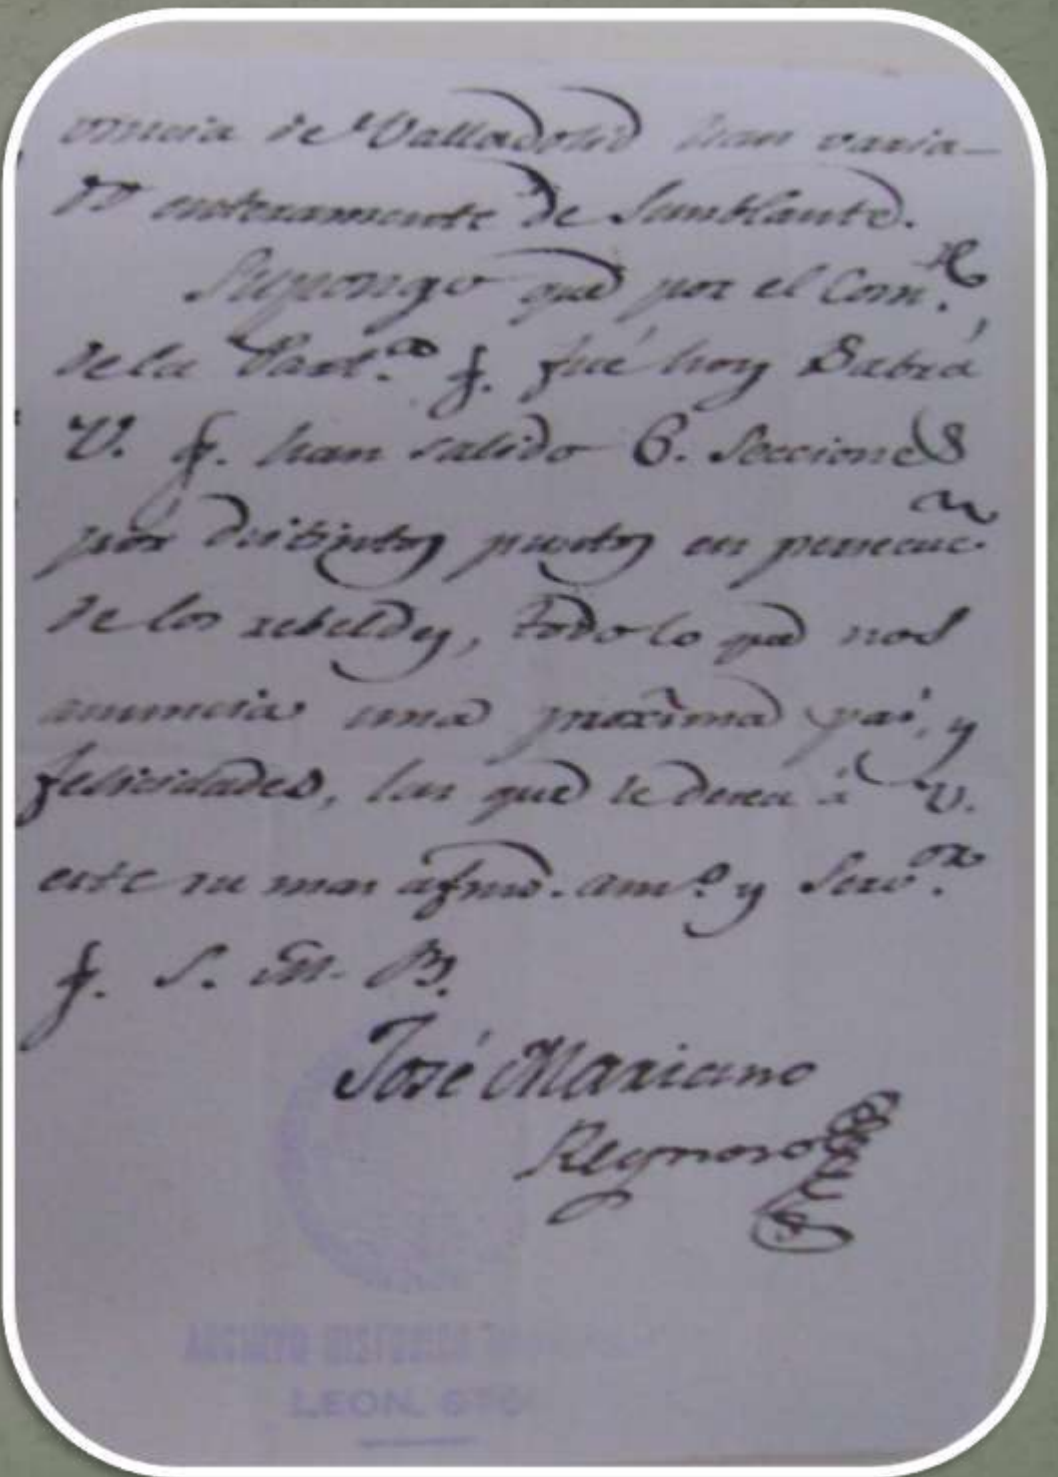 vincia de Valladolid han varia-
do enteramente de Semblante.
Supongo que por el Com.te
de la Part.da q. fué hoy Sabrá
V. q. han salido 6. Secciones
por distintos puntos en persecuc.n
de los rebeldes, todo lo que nos
anuncia una proxîma paz, y
felicidades, las que le desea á V.
este su mas afmo. am.o y Serv.or
q. S. M. B.
José Mariano
Reynoso
ARCHIVO HISTORICO
LEON. GTO